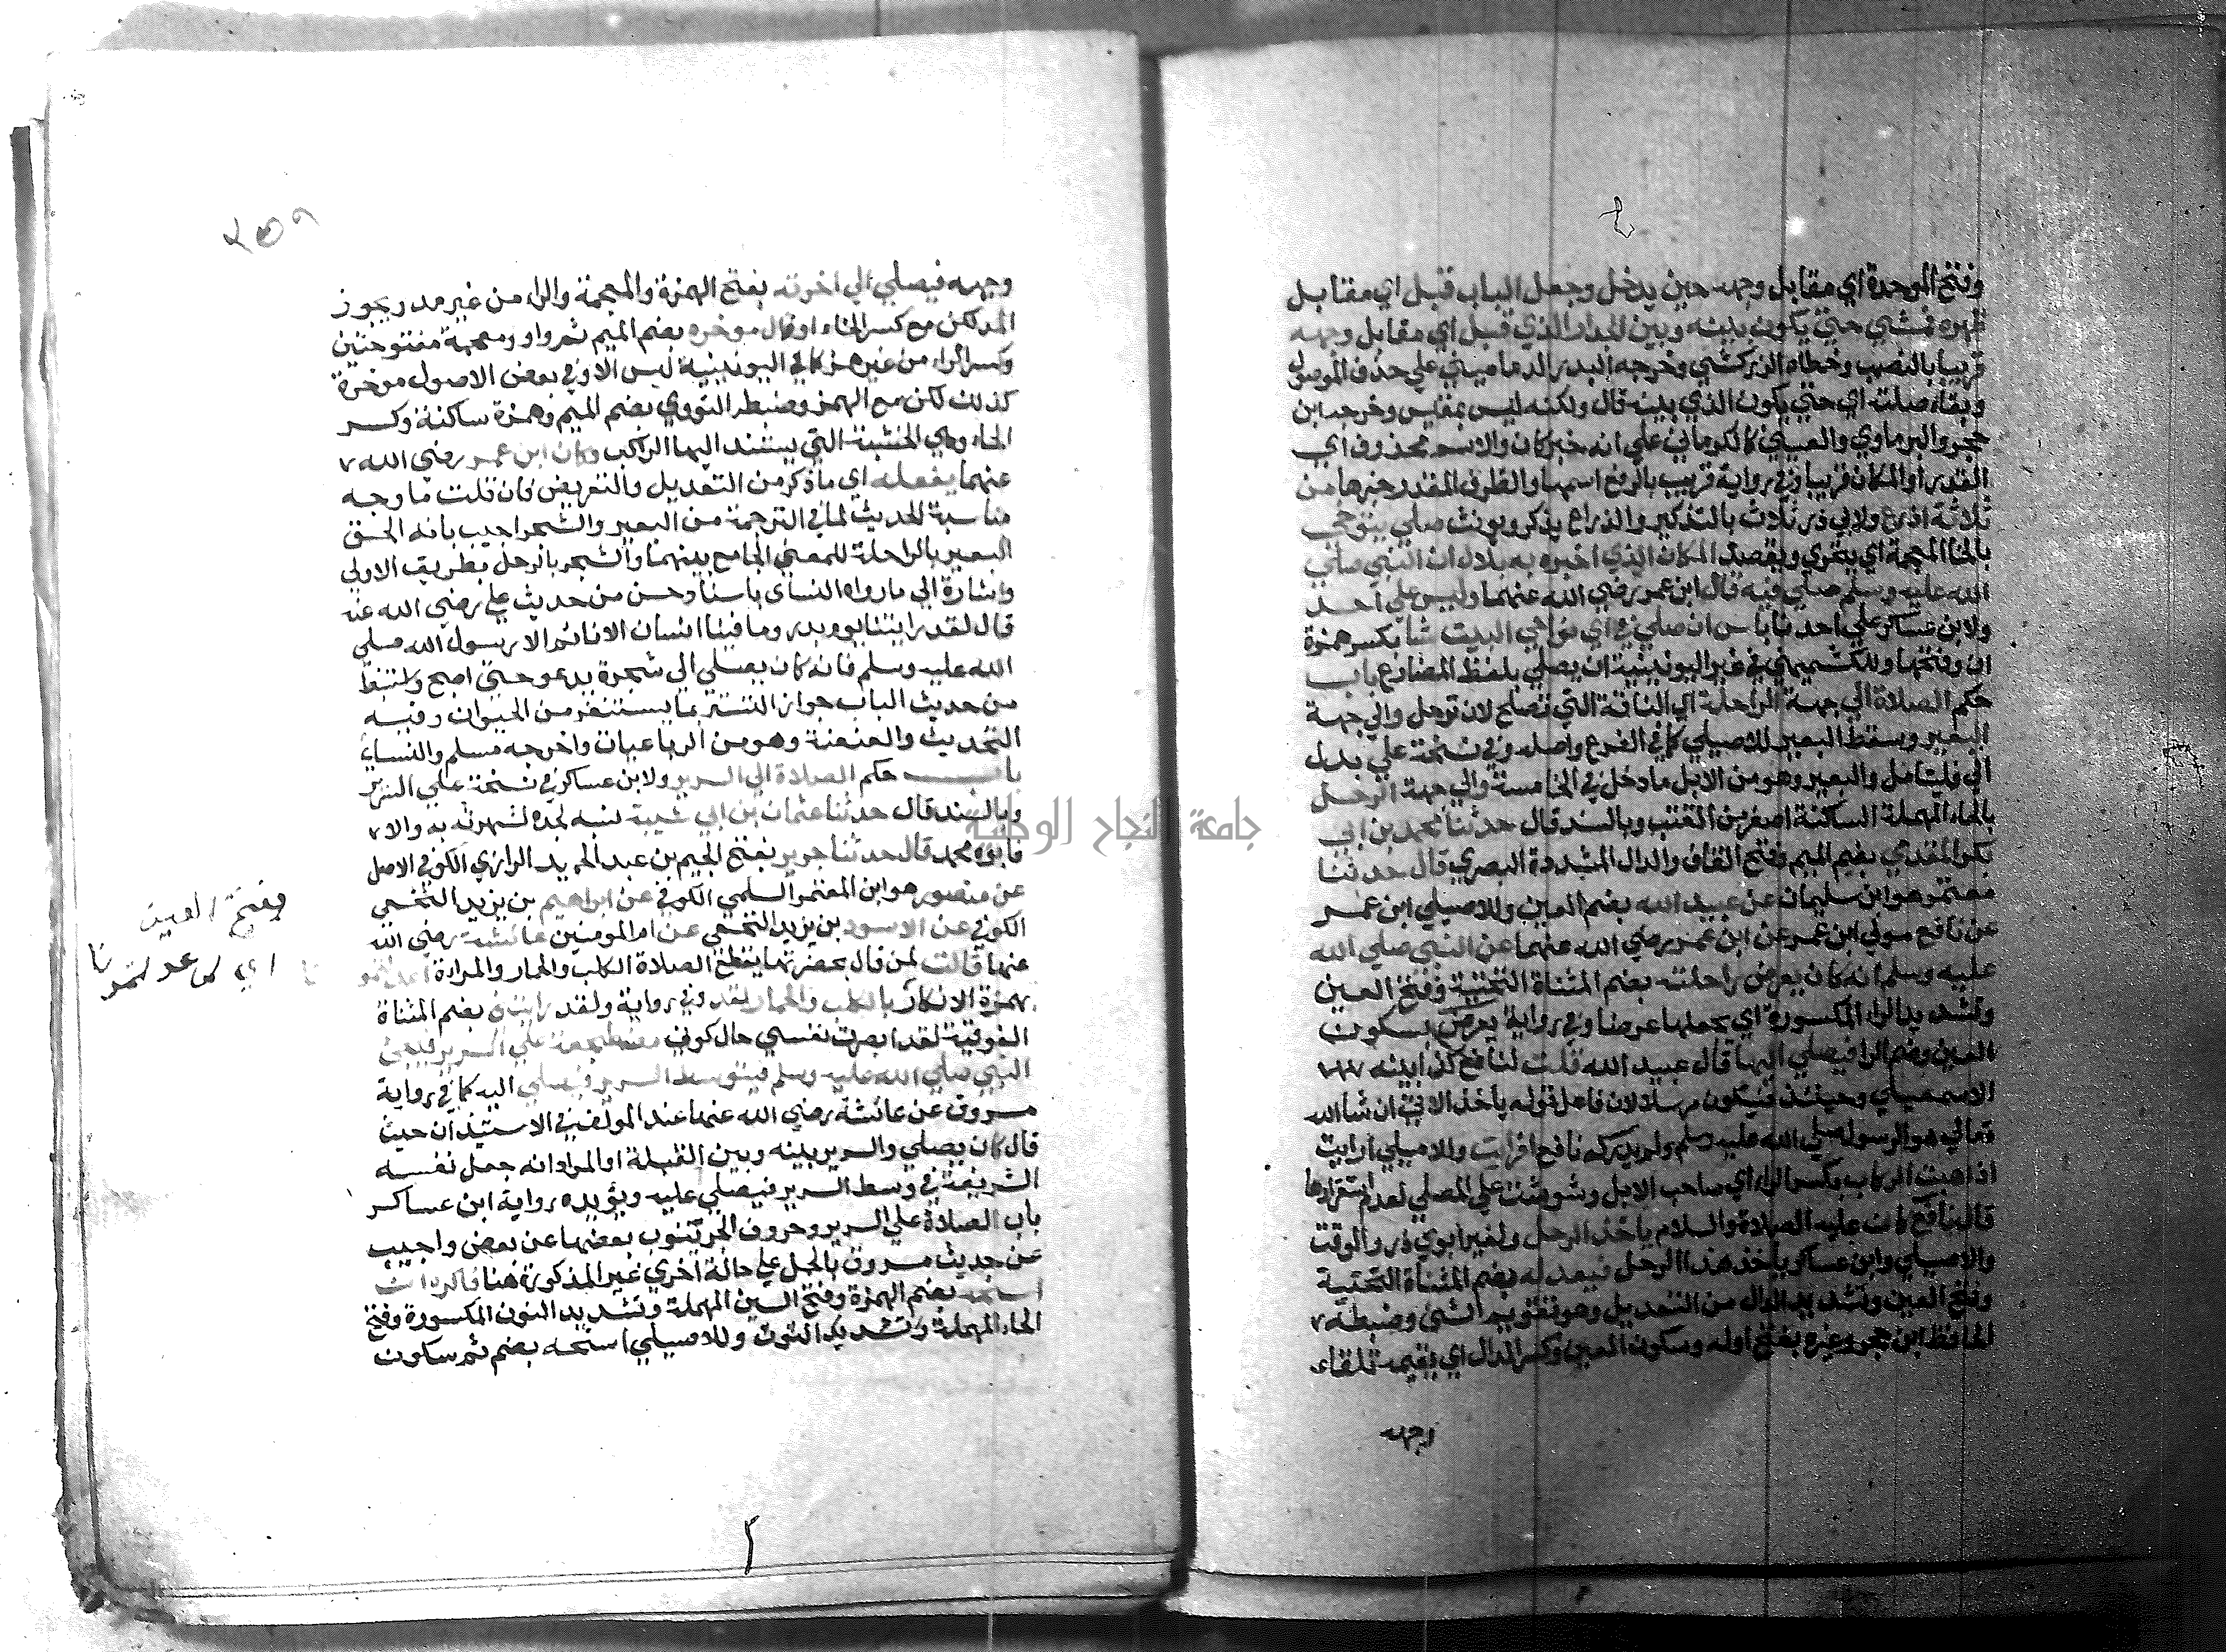 وفتح الموحدة اي مقابل وجهه حين يدخل وجعل الباب قبل اي مقابل
ظهره فمشي حتي يكون بينه وبين الجدار الذي قبل اي مقابل وجهه
قريبا بالنصب وخطاه الزركشي وخرجه البدر الدماميني علي حذف الموصول
وبقاء صلته اي حتي يكون الذي بينه قال ولكنه ليس بمقيس وخرجه ابن
حجر والبرماوي والعيني كالكرماني علي انه خبر كان والاسم محذوف اي
القدر او المكان قريبا وفي رواية قريب بالرفع اسمها والظرف المقدر خبرها من
ثلاثة اذرع ولابي ذر ثلاث بالتذكير والذراع يذكر ويونث صلي يتوخي
بالخا المعجمة اي يتحري ويقصد المكان الذي اخبره به بلال ان النبي صلي
الله عليه وسلم صلي فيه قال ابن عمر رضي الله عنهما وليس علي احد
ولابن عساكر علي احدنا باس ان صلي في اي نواحي البيت شا بكسر همزة
ان وفتحها وللكشميهني في غير اليونينية ان يصلي بلفظ المضارع باب
حكم الصلاة الي جهة الراحلة اي الناقة التي تصلح لان ترحل والي جهة
البعير وسقط البعير للاصيلي كما في الفرع واصله وفي نسخة علي بدل
الي فليتامل والبعير وهو من الابل ما دخل في الخامسة والي جهة الرحل
بالحاء المهملة الساكنة اصغر من القتب وبالسند قال حدثنا محمد بن ابي
بكر المقدمي بضم الميم وفتح القاف والدال المشددة البصري قال حدثنا
معتمر هو ابن سليمان عن عبيد الله بضم العين وللاصيلي ابن عمر
عن نافع مولي ابن عمر عن ابن عمر رضي الله عنهما عن النبي صلي الله
عليه وسلم انه كان يعرض راحلته بضم المثناة التحتية وفتح العين
وتشديد الراء المكسورة اي يجعلها عرضا وفي رواية يعرض بسكون
العين وضم الرا فيصلي اليها قال عبيد الله قلت لنافع كذا بينه
الاسمعيلي وحينئذ فيكون مرسلا لان فاعل قوله ياخذ الاتي ان شا الله
تعالي هو الرسول صلي الله عليه وسلم ولم يدركه نافع افرايت وللاصيلي ارايت
اذا هبت الركاب بكسر الراء اي صاحب الابل وشوشت علي المصلي لعدم استقرارها
قال نافع كان عليه الصلاة والسلام ياخذ الرحل ولغير ابوي ذر والوقت
والاصيلي وابن عساكر ياخذ هذا الرحل فيعدله بضم المثناة التحتية
وفتح العين وتشديد الدال من التعديل وهو تقويم الشئ وضبطه
الحافظ ابن حجر وغيره بفتح اوله وسكون العين وكسر الدال اي يقيمه تلقاء
وجهه
٢٥٩
وجهه فيصلي الي اخرته بفتح الهمزة والمعجمة والراء من غير مد ويجوز
المد لكن مع كسر الخاء او قال موخره بضم الميم ثم واو ومعجمة مفتوحتين
وكسر الراء من غير همز كما في اليونينية ليس الا وفي بعض الاصول موخرة
كذلك لكن مع الهمز وضبطه النووي بضم الميم وهمزة ساكنة وكسر
الخاء وهي الخشبة التي يستند اليها الراكب وكان ابن عمر رضي الله
عنهما يفعله اي ما ذكر من التعديل والتعريض فان قلت ما وجه
مناسبة الحديث لما في الترجمة من البعير والشجر اجيب بانه الحق
البعير بالراحلة للمعني الجامع بينهما والشجر بالرحل بطريق الاولي
واشارة الي ما رواه النساي باسناد حسن من حديث علي رضي الله عنه
قال لقد رايتنا يوم بدر وما فينا انسان الا نائم الا رسول الله صلي
الله عليه وسلم فانه كان يصلي الي شجرة يدعو حتي اصبح واستنبط
من حديث الباب جواز التستر بما يستقر من الحيوان وفيه
التحديث والعنعنة وهو من الرباعيات واخرجه مسلم والنساي
باب حكم الصلاة الي السرير ولابن عساكر في نسخة علي السرير
وبالسند قال حدثنا عثمان بن ابي شيبة نسبه لجده لشهرته به والا
فابوه محمد قال حدثنا جرير بفتح الجيم بن عبد الحميد الرازي الكوفي الاصل
عن منصور هو ابن المعتمر السلمي الكوفي عن ابراهيم بن يزيد النخعي
الكوفي عن الاسود بن يزيد النخعي عن ام المومنين عائشة رضي الله
عنها قالت لمن قال بحضرتها يقطع الصلاة الكلب والحمار والمراة اعدلتمونا
وفتح العين
اي لم عدلتمونا
بهمزة الانكار بالكلب والحمار لقد وفي رواية ولقد رايتني بضم المثناة
الفوقية لقد ابصرت نفسي حال كوني مضطجعة علي السرير فيجئ
النبي صلي الله عليه وسلم فيتوسط السرير فيصلي اليه كما في رواية
مسروق عن عائشة رضي الله عنها عند المولف في الاستيذان حيث
قال كان يصلي والسرير بينه وبين القبلة او المراد انه جعل نفسه
الشريفة في وسط السرير فيصلي عليه ويؤيده رواية ابن عساكر
باب الصلاة علي السرير وحروف الجر تنوب بعضها عن بعض واجيب
عن حديث مسروق بالحمل علي حالة اخري غير المذكورة هنا فاكره ان
اسنحه بضم الهمزة وفتح السين المهملة وتشديد النون المكسورة وفتح
الحاء المهملة وتشديد النون وللاصيلي اسنحه بضم ثم سكون
جامعة النجاح الوطنية